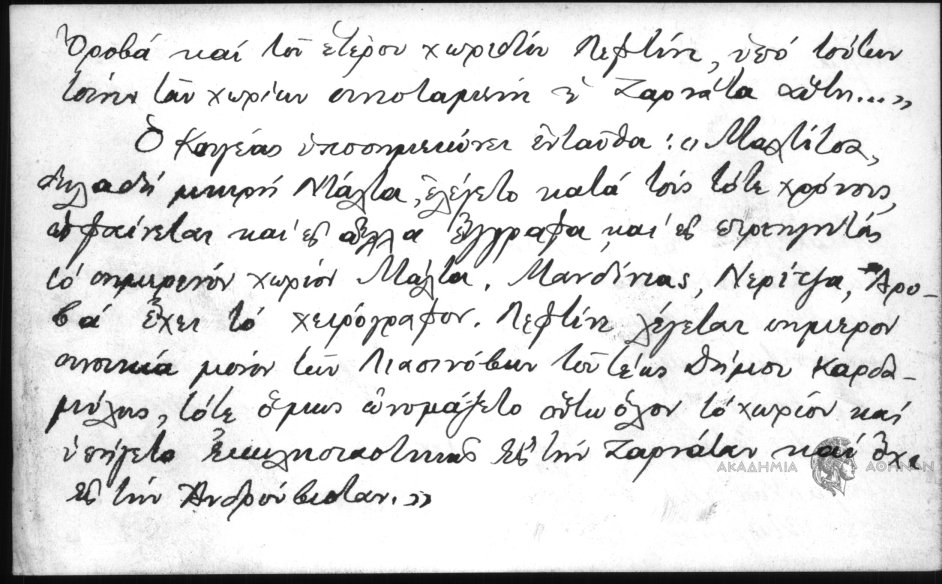 Ὀροβά καί τοῦ ἑτέρου χωρίου Λεφτίνη, ὑπό τούτων
τῶν χωρίων συνισταμένη ἡ Ζαρνάτα αὕτη...»
Ὁ Κουγέας ὑποσημειώνει ἐνταῦθα: «Μαλτίτσα,
δηλαδή μικρή Μάλτα, ἐλέγετο κατά τούς τότε χρόνους,
ὡς φαίνεται καί ἐξ ἄλλα ἔγγραφα, καί ἐξ
τό σημερινόν χωρίον Μάλτα. Μανδίνιας, Νερίτζα, Ἀρο-
βά ἔχει τό χειρόγραφον. Λεφτίνη λέγεται σήμερον
συνοικία μόνον τῶν Λιασινόβων τοῦ τέως δήμου Καρδα-
μύλης, τότε ὅμως ὠνομάζετο οὕτω ὅλον τό χωρίον καί
ὑπήγετο ἐκκλησιαστικῶς εἰς τήν Ζαρνάταν καί ὄχι
εἰς τήν Ἀνδρούβισταν.»
ΑΚΑΔΗΜΙΑ ΑΘΗΝΩΝ